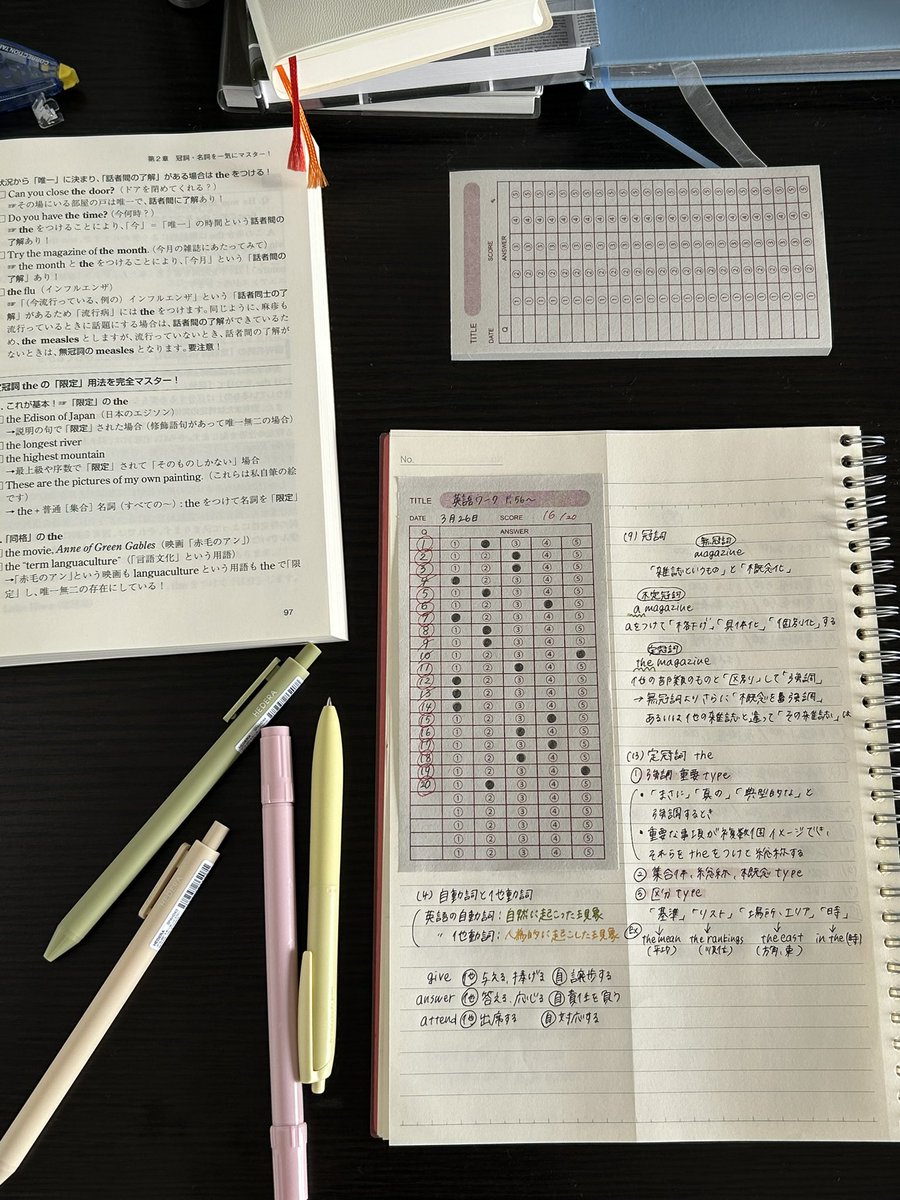 CORRECTION TAPE
第2章 冠詞・名詞を一気にマスター！
状況から「唯一」に決まり、「話者間の了解」がある場合は the をつける！
Can you close the door?（ドアを閉めてくれる？）
☞その場にいる部屋の戸は唯一で、話者間に了解あり！
Do you have the time?（今何時？）
☞ the をつけることにより、「今」＝「唯一」の時間という話者間の
了解あり！
Try the magazine of the month.（今月の雑誌にあたってみて）
☞ the month と the をつけることにより、「今月」という「話者間の
了解」あり！
the flu（インフルエンザ）
☞「（今流行っている、例の）インフルエンザ」という「話者同士の了
解」があるため「流行病」には the をつけます。同じように、麻疹も
流行っているときに話題にする場合は、話者間の了解ができているた
め、the measles としますが、流行っていないとき、話者間の了解が
ないときは、無冠詞の measles となります。要注意！
定冠詞 the の「限定」用法を完全マスター！
. これが基本！☞「限定」の the
the Edison of Japan（日本のエジソン）
→説明の句で「限定」された場合（修飾語句があって唯一無二の場合）
the longest river
the highest mountain
→最上級や序数で「限定」されて「そのものしかない」場合
These are the pictures of my own painting.（これらは私自筆の絵
です）
→ the + 普通［集合］名詞（すべての〜）: the をつけて名詞を「限定」
.「同格」の the
the movie. Anne of Green Gables（映画「赤毛のアン」）
the "term languaculture"（「言語文化」という用語）
→「赤毛のアン」という映画も languaculture という用語も the で「限
定」し、唯一無二の存在にしている！
97
TITLE
DATE SCORE %
Q ANSWER
① ② ③ ④ ⑤
HEDERA
No.
TITLE 英語ワーク P.56〜
DATE 3月26日 SCORE 16/20
Q ANSWER
1 ① ③ ④ ⑤
2 ① ② ④ ⑤
3 ① ② ④ ⑤
4 ② ③ ④ ⑤
5 ① ③ ④ ⑤
6 ① ② ③ ⑤
7 ② ③ ④ ⑤
8 ① ③ ④ ⑤
9 ① ③ ④ ⑤
10 ① ② ③ ④
11 ① ② ④ ⑤
12 ② ③ ④ ⑤
13 ② ③ ④ ⑤
14 ② ③ ④ ⑤
15 ① ② ③ ⑤
16 ① ② ④ ⑤
17 ① ② ③ ⑤
18 ① ② ④ ⑤
19 ① ② ③ ④
20 ① ③ ④ ⑤
① ② ③ ④ ⑤
① ② ③ ④ ⑤
① ② ③ ④ ⑤
① ② ③ ④ ⑤
① ② ③ ④ ⑤
(4) 自動詞と他動詞
英語の自動詞：自然に起こった現象
〃 他動詞：人為的に起こした現象
give 他 与える、捧げる 自 譲歩する
answer 他 答える、応じる 自 責任を負う
attend 他 出席する 自 対応する
(9) 冠詞
無冠詞
magazine
「雑誌というもの」と「概念化」
不定冠詞
a magazine
aをつけて「格下げ」「具体化」「個別化」する
定冠詞
the magazine
他の部類のものと「区別」して「強調」
→ 無冠詞よりさらに「概念を強調」
あるいは他の雑誌と違って「その雑誌」は
(13) 定冠詞 the
① 強調 重要 type
・「まさに」「真の」「典型的な」と
強調するとき
・重要な事項が複数個イメージでき、
それらを theをつけて総称する
② 集合体、総称、概念 type
③ 区分 type
「基準」「リスト」「場所、エリア」「時」
Ex the mean the rankings the east in the (時)
(平均) (順位) (方角、東)